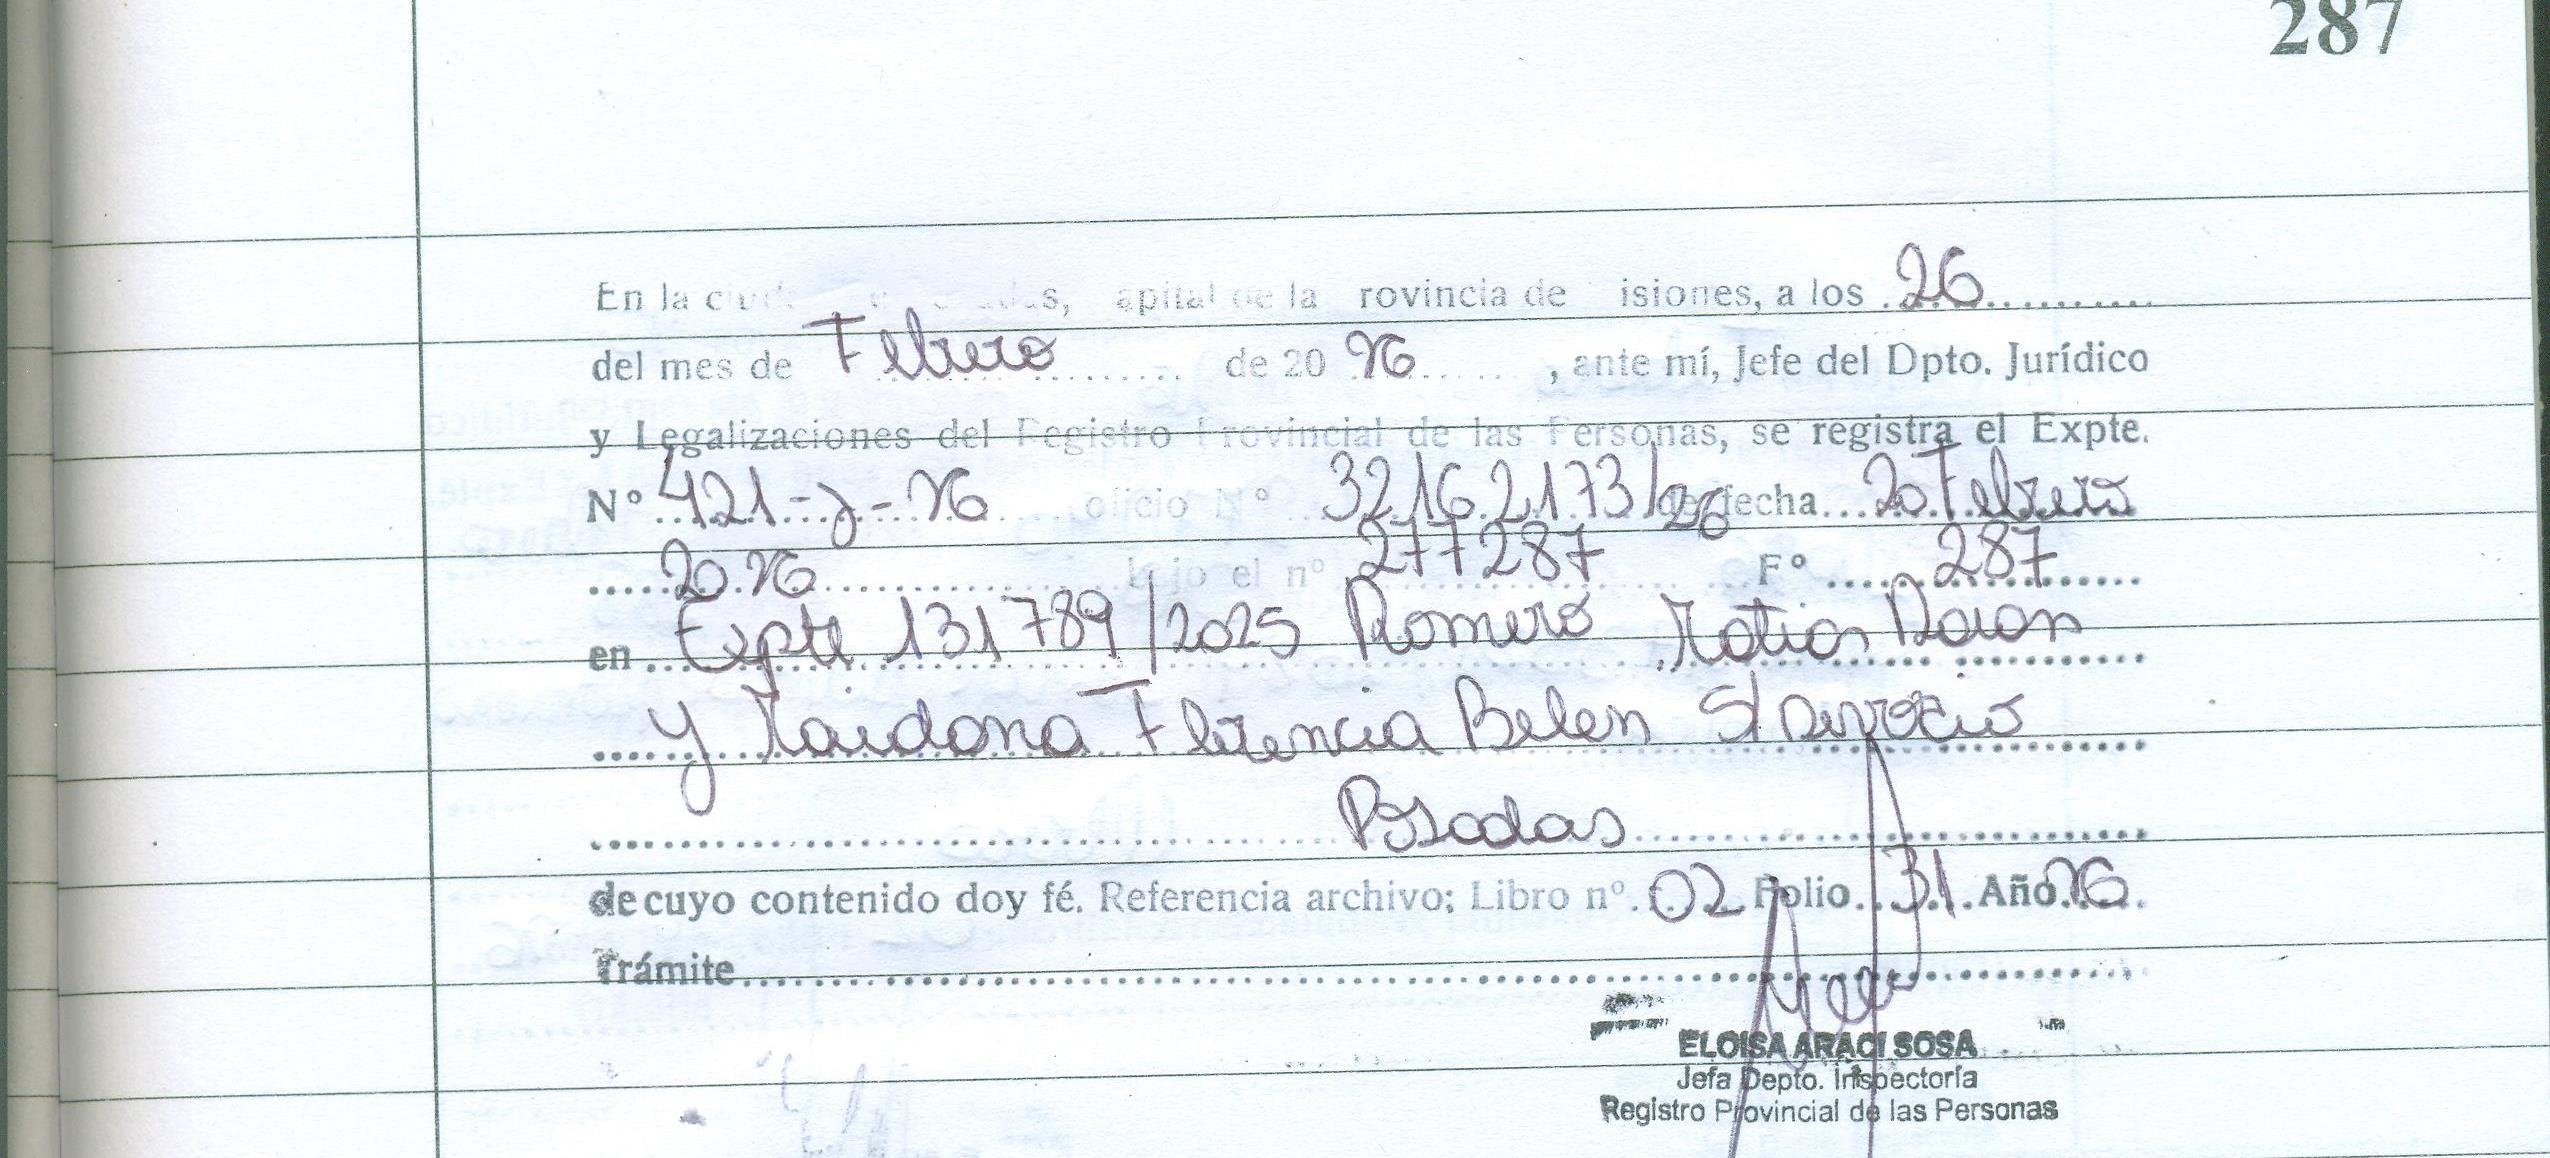 287
En la ciud e adas, apital de la rovincia de isiones, a los 26
del mes de Febrero de 20 26, ante mí, Jefe del Dpto. Jurídico
y Legalizaciones del Registro Provincial de las Personas, se registra el Expte.
Nº 421-J-26 oficio Nº 32162173/26 de fecha 20 Febrero
2026 bajo el nº 277287 Fº 287
en Expte 131789/2025 Romero Matias Daian
y Maidana Florencia Belen S/ Divorcio
Posadas
de cuyo contenido doy fé. Referencia archivo; Libro nº 02 Folio 31 Año 26
Trámite
ELOISA ARACI SOSA
Jefa Depto. Inspectoría
Registro Provincial de las Personas